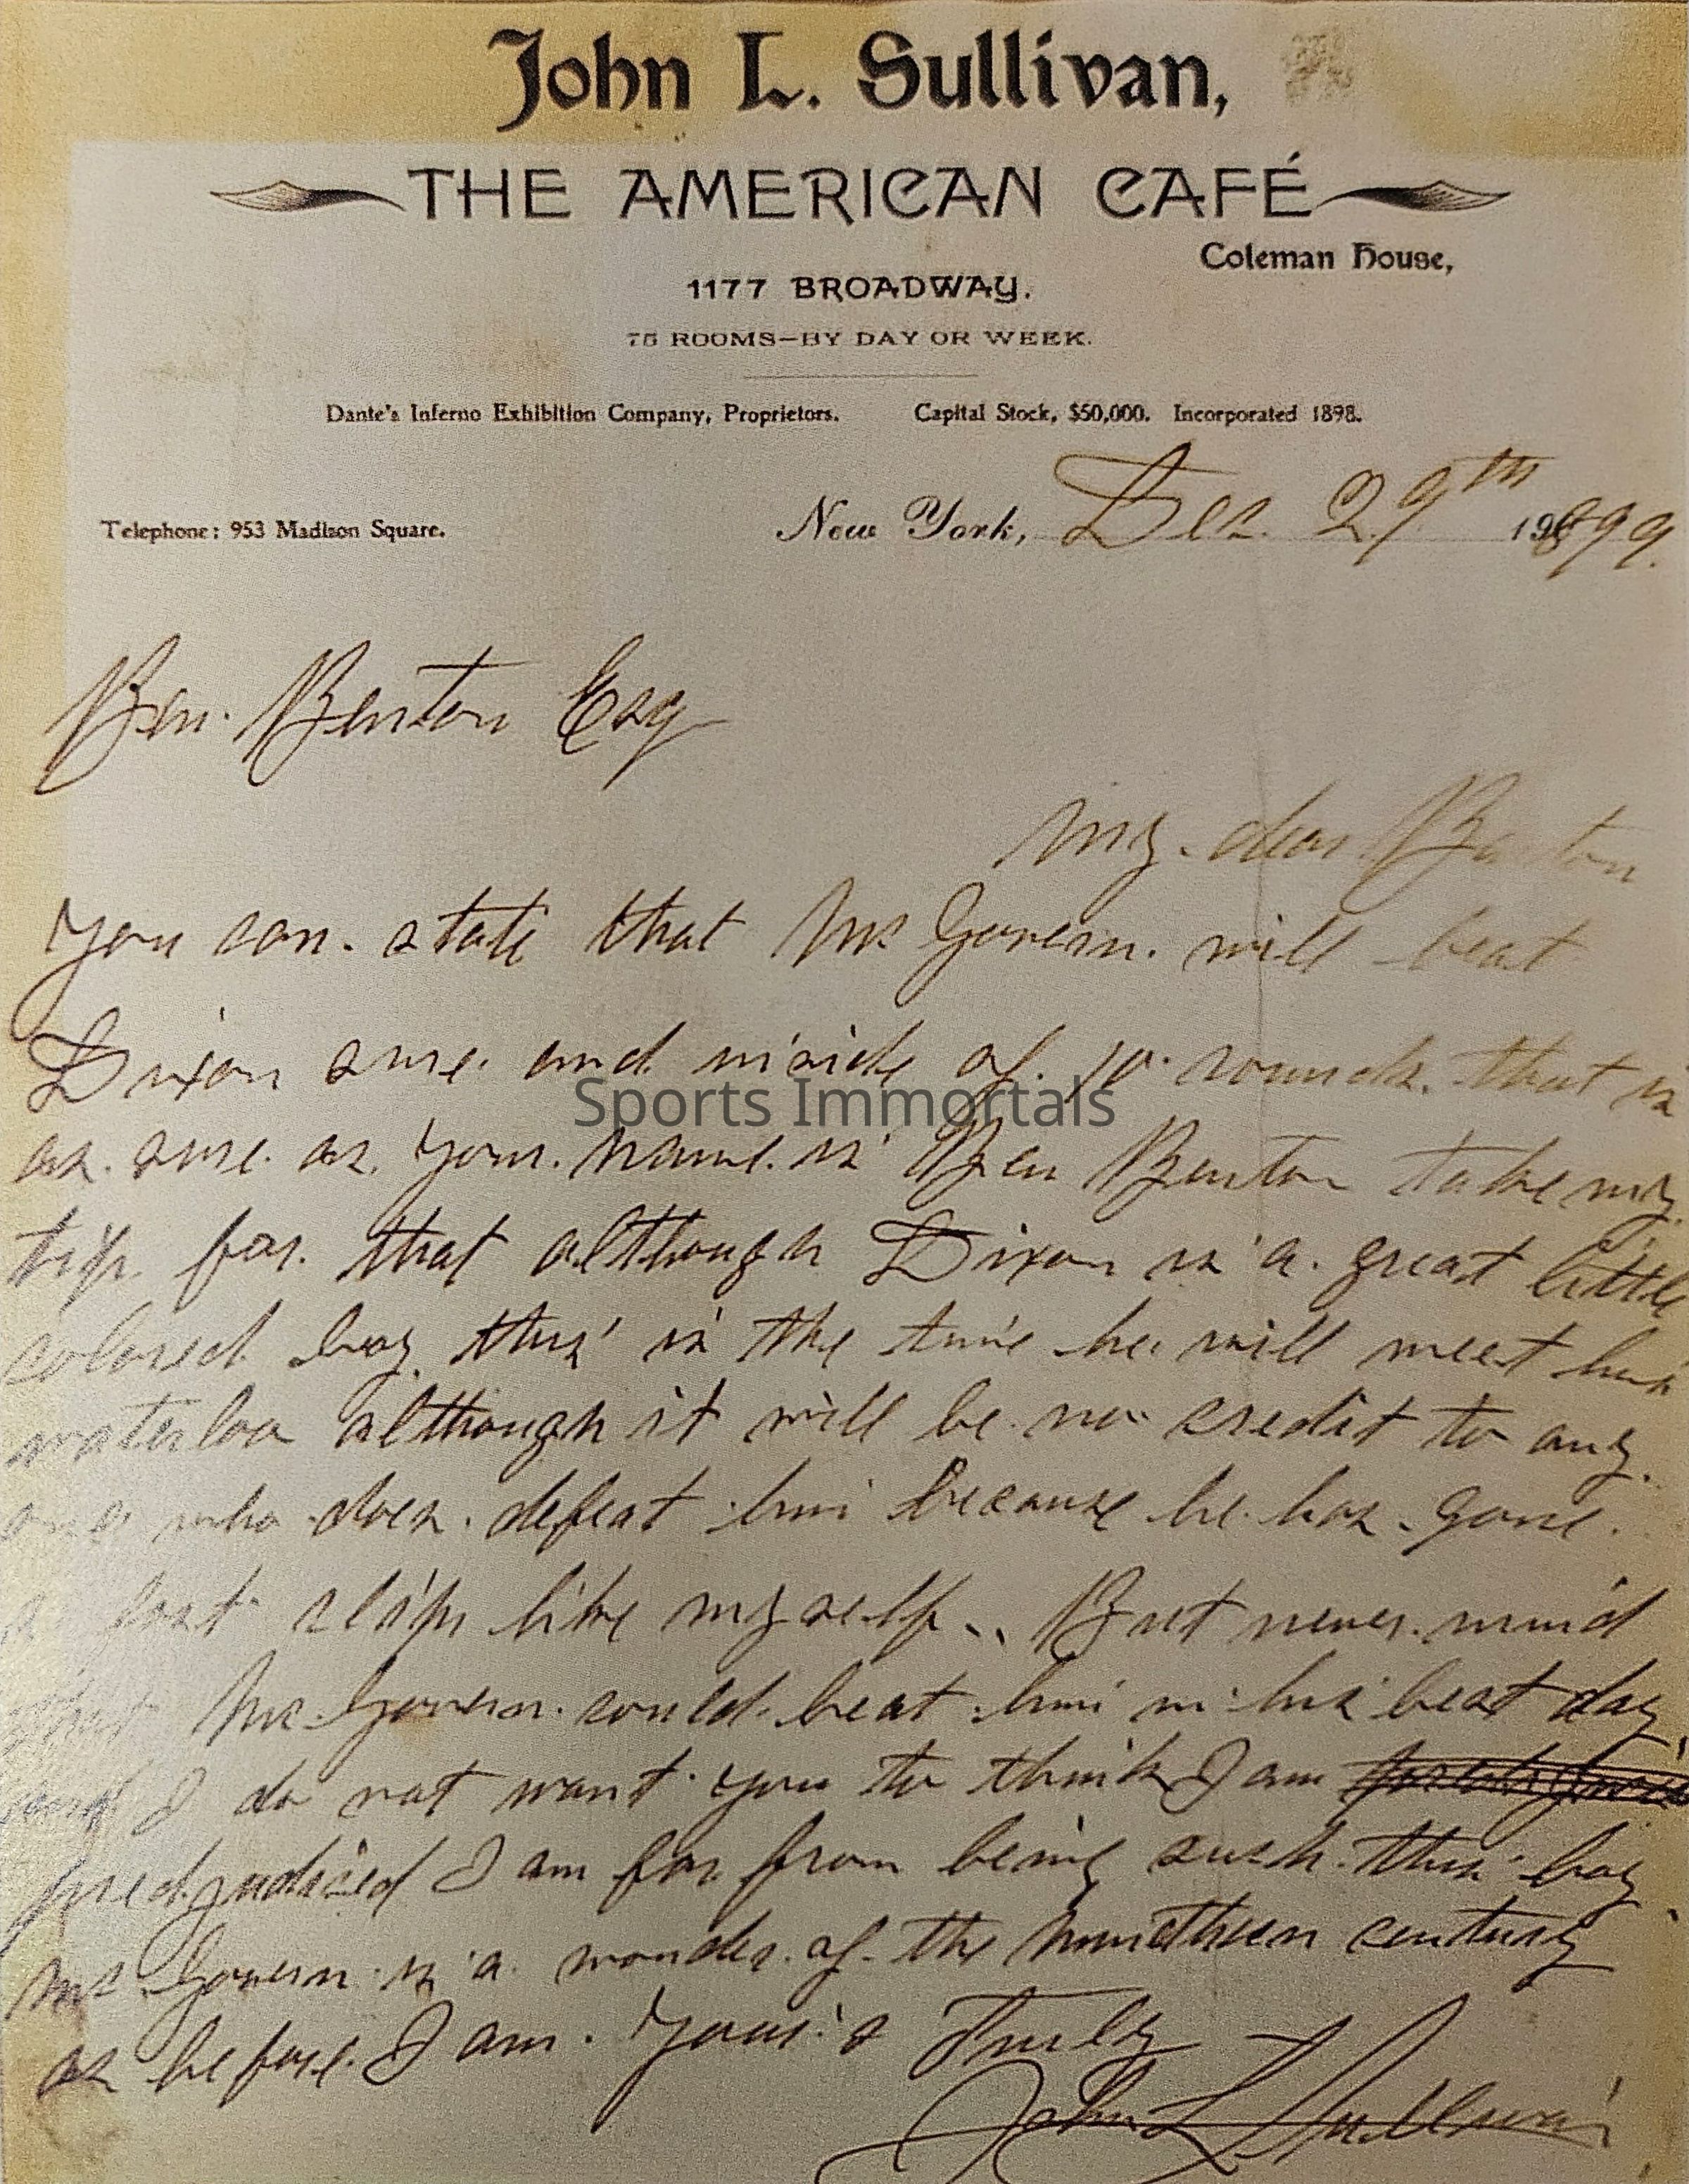 John L. Sullivan,
THE AMERICAN CAFÉ
Coleman House,
1177 BROADWAY.
75 ROOMS—BY DAY OR WEEK.
Dante's Inferno Exhibition Company, Proprietors. Capital Stock, $50,000. Incorporated 1898.
Telephone: 953 Madison Square. New York, Dec. 29th 1899.
Ben. Benton Esq
My. dear Benton
You can. state that McGovern. will beat
Dixon sure. and inside of. 10. rounds. that is
as. sure. as. your. name. is Ben Benton take my
tip. for. that although Dixon is a. great little
colored. boy. this is the time he. will meet his
waterloo although it will be. no credit to any.
one who does. defeat him because he. has. gone.
a fast clip like myself.. But never. mind
that McGovern. could. beat him in his best day
and I do not want you to think I am
predjudiced I am far from being such. this boy
McGovern. is a. wonder. of. the ninetheen century
as before. I am. Your's Truly
John L Sullivan
Sports Immortals